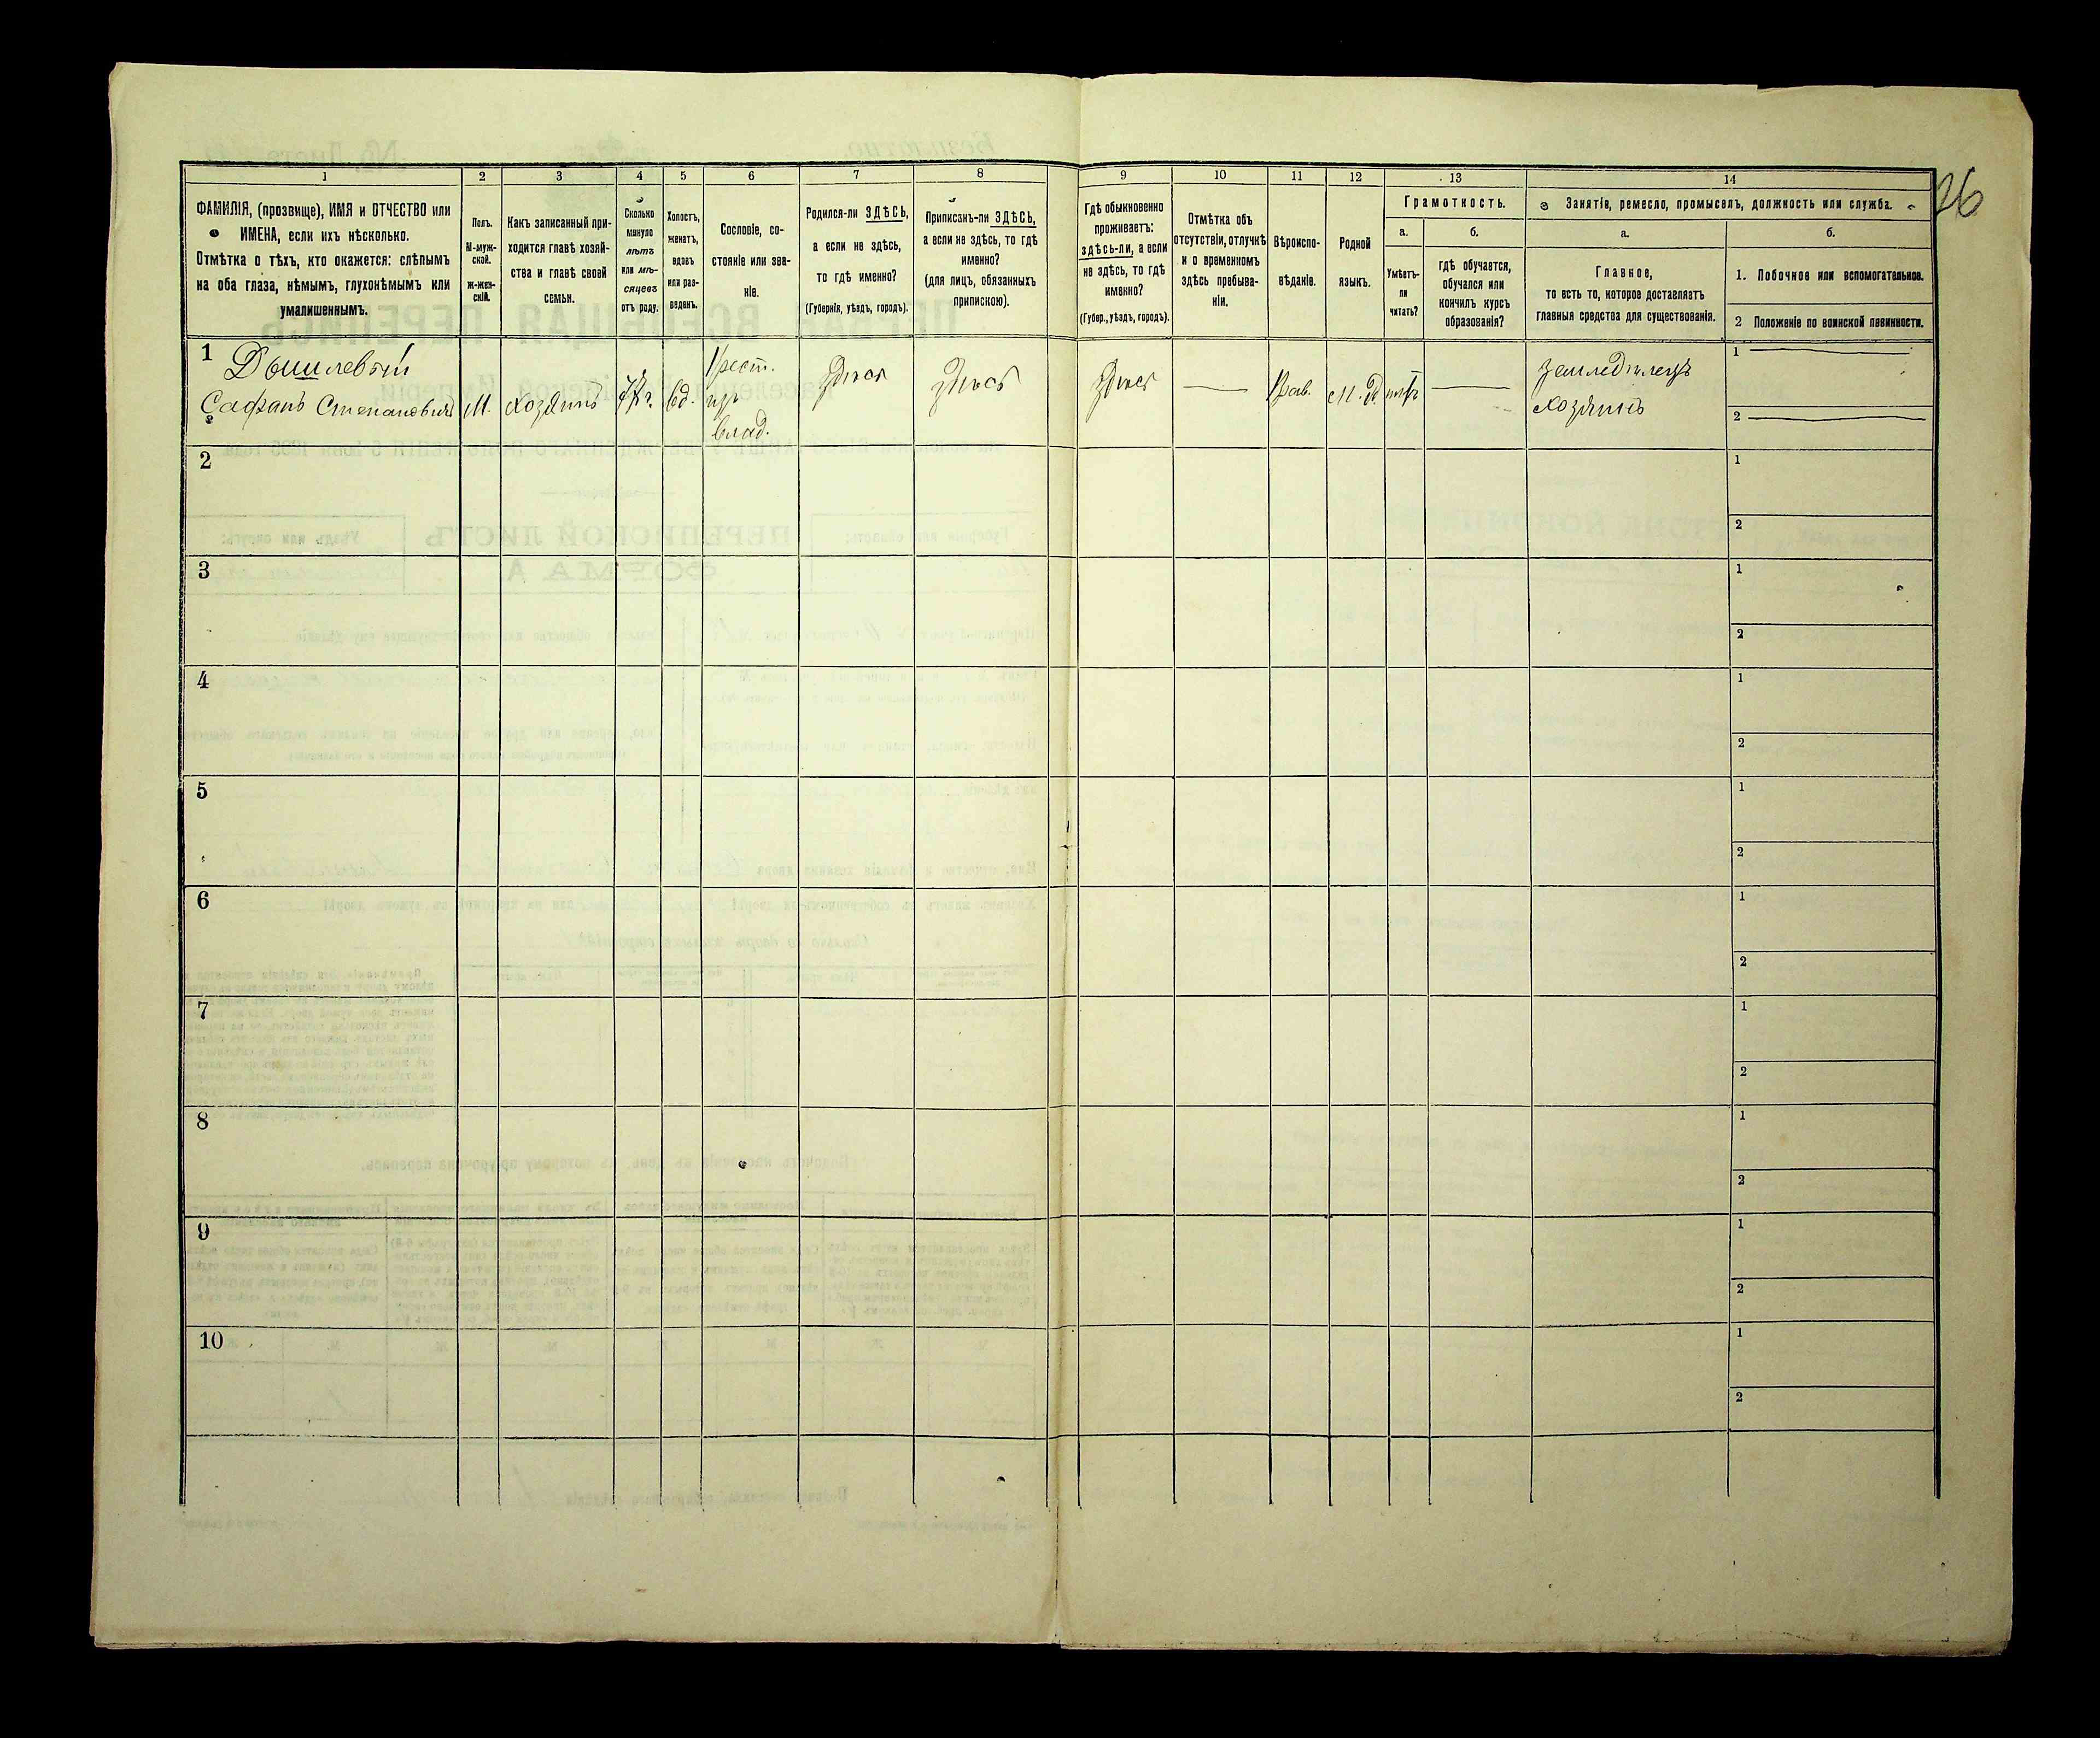 26
1
2
3
4
5
6
7
8
9
10
11
12
13
14
ФАМИЛІЯ, (прозвище), ИМЯ и ОТЧЕСТВО или
ИМЕНА, если ихъ нѣсколько.
Отмѣтка о тѣхъ, кто окажется: слѣпымъ
на оба глаза, нѣмымъ, глухонѣмымъ или
умалишеннымъ.
Полъ.
М-муж-
ской.
ж-жен-
скій.
Какъ записанный при-
ходится главѣ хозяй-
ства и главѣ своей
семьи.
Сколько
минуло
лѣтъ
или мѣ-
сяцевъ
отъ роду.
Холостъ,
женатъ,
вдовъ
или раз-
веденъ.
Сословіе, со-
стояніе или зва-
ніе.
Родился-ли ЗДѢСЬ,
а если не здѣсь,
то гдѣ именно?
(Губернія, уѣздъ, городъ).
Приписанъ-ли ЗДѢСЬ,
а если не здѣсь, то гдѣ
именно?
(для лицъ, обязанныхъ
припискою).
Гдѣ обыкновенно
проживаетъ:
здѣсь-ли, а если
не здѣсь, то гдѣ
именно?
(Губер., уѣздъ, городъ).
Отмѣтка объ
отсутствіи, отлучкѣ
и о временномъ
здѣсь пребыва-
ніи.
Вѣроиспо-
вѣданіе.
Родной
языкъ.
Грамотность.
а.
Умѣетъ-
ли
читать?
б.
гдѣ обучается,
обучался или
кончилъ курсъ
образованія?
Занятіе, ремесло, промыселъ, должность или служба.
а.
Главное,
то есть то, которое доставляетъ
главныя средства для существованія.
б.
1. Побочное или вспомогательное.
2 Положеніе по воинской повинности.
1
Дышлевый
Сафанъ Степановичъ
М.
хозяинъ
вд.
Крест.
изъ
влад.
Здѣсь
Здѣсь
Здѣсь
Прав.
М. Р.
нѣтъ
Земледѣлецъ
хозяинъ
1
2
2
1
2
3
1
2
4
1
2
5
1
2
6
1
2
7
1
2
8
1
2
9
1
2
10
1
2